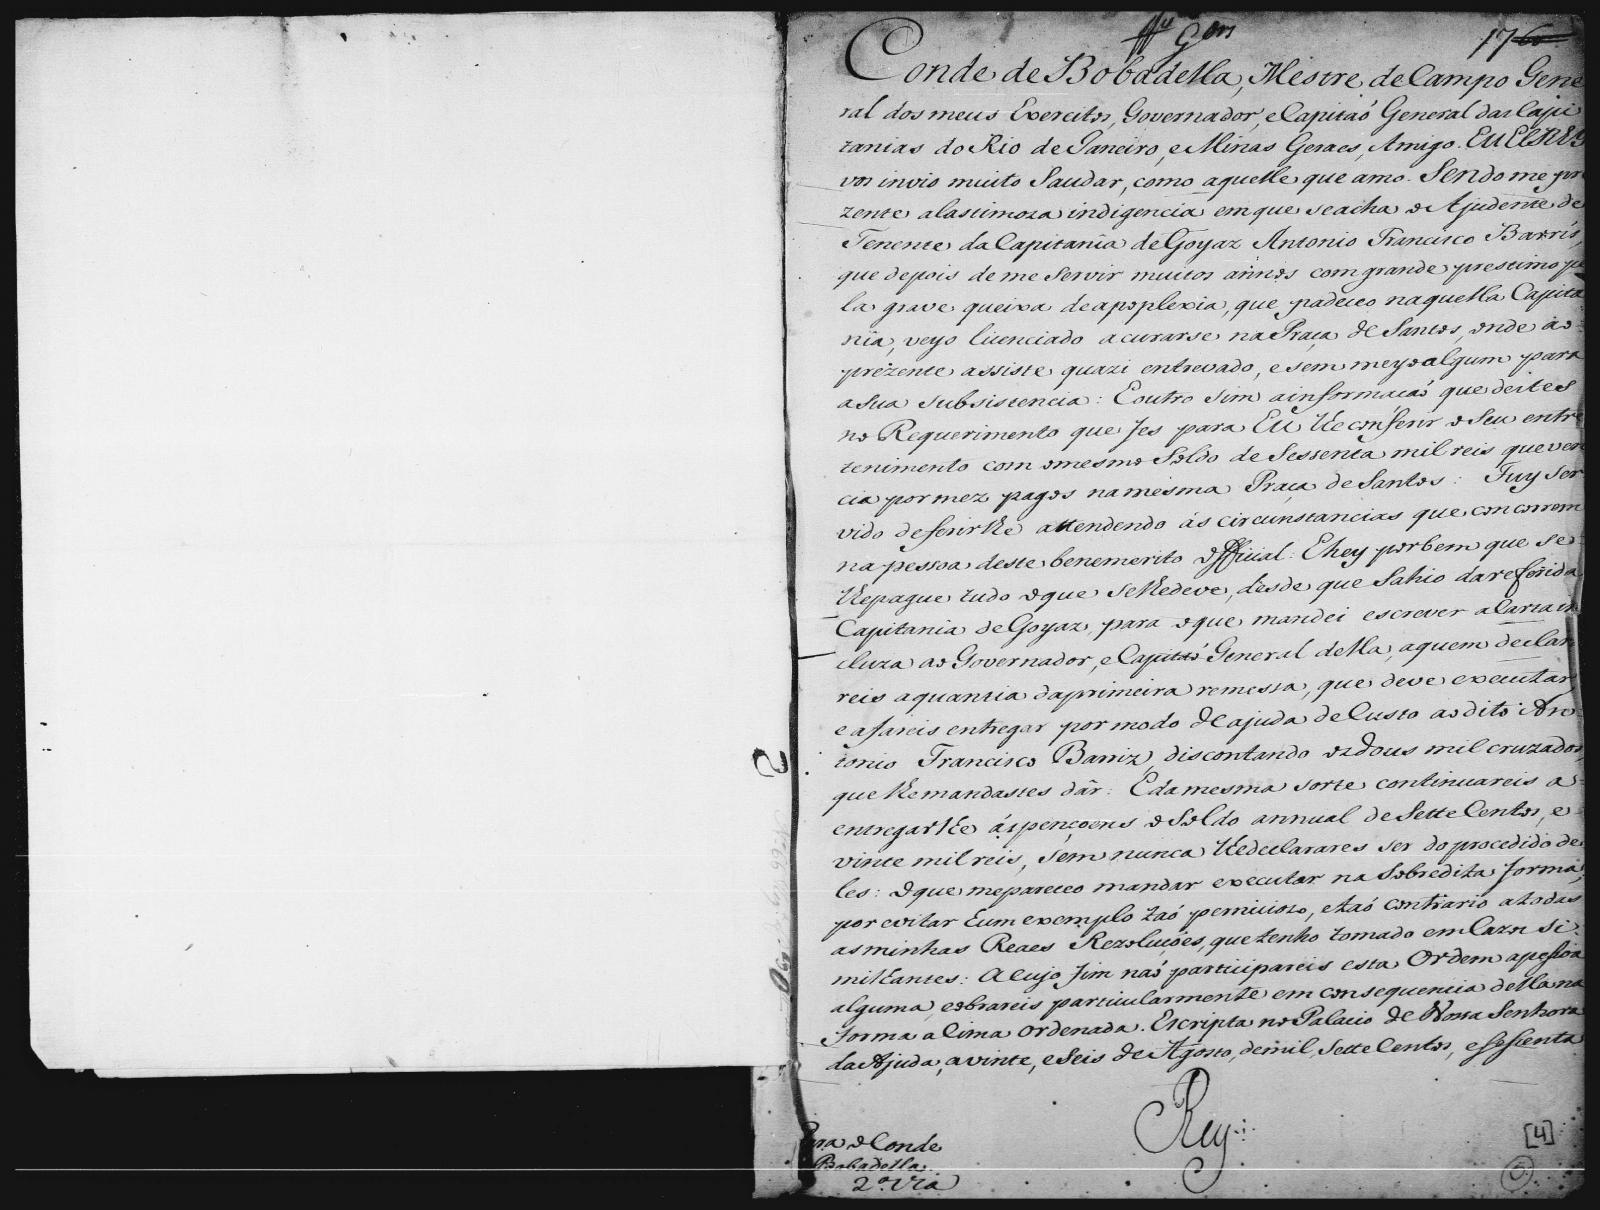 17
Conde de Bobadella, Mestre de Campo Gene
ral dos meus Exercitos, Governador, e Capitaõ General das Capi
tanias do Rio de Janeiro, e Minas Geraes, Amigo. EU ELREY
vos invio muito Saudar, como aquelle que amo. Sendo me pre
zente a lastimoza indigencia em que se acha o Ajudente de
Tenente da Capitanîa de Goyaz Antonio Francisco Barris,
que depois de me servir muitos annos com grande prestimo pe
la grave queixa de apoplexia, que padeceo naquella Capita
nîa, veyo licenciado a curarse na Praça de Santos, onde ao
prezente assiste quazi entrevado, e sem meyo algum para
a sua subsistencia: E outro sim a informacaõ que destes
no Requerimento que fes para EU lhe conferir o seu entre
tenimento com o mesmo Soldo de Sessenta mil reis que ven
cia por mez pagos na mesma Praça de Santos: Fuy ser
vido deferirlhe attendendo ás circunstancias que concorrem
na pessoa deste benemerito official: E hey por bem que se
lhe pague tudo o que se lhe deve, desde que sahio da referida
Capitania de Goyaz, para o que mandei escrever a Carta in
cluza ao Governador, e Capitaõ General della, a quem declar
reis a quantia da primeira remessa, que deve executar
e a fareis entregar por modo de ajuda de Custo ao dito An
tonio Francisco Barriz, discontando os dous mil cruzados,
que lhe mandastes dâr: E da mesma sorte continuareis a
entregarlhe ás pençoens o Soldo annual de Sette Centos, e
vinte mil reis, sem nunca lhe declarares ser do procedido de
les: O que me pareceo mandar executar na Sobredita forma,
por evitar hum exemplo taó pernicioso, e taó contrario a todas
as minhas Reaes Rezoluçoẽs, que tenho tomado em Cazos si
milhantes: A cujo fim naó participareis esta Ordem a pessoa
alguma, e obrareis particularmente em consequencia della na
forma a Cima Ordenada. Escripta no Palacio de Nossa Senhora
da Ajuda, a vinte, e Seis de Agosto, de mil, Sette Centos, e sessenta
Rey
Para o Conde
Bobadella.
2.ª Via
[4]